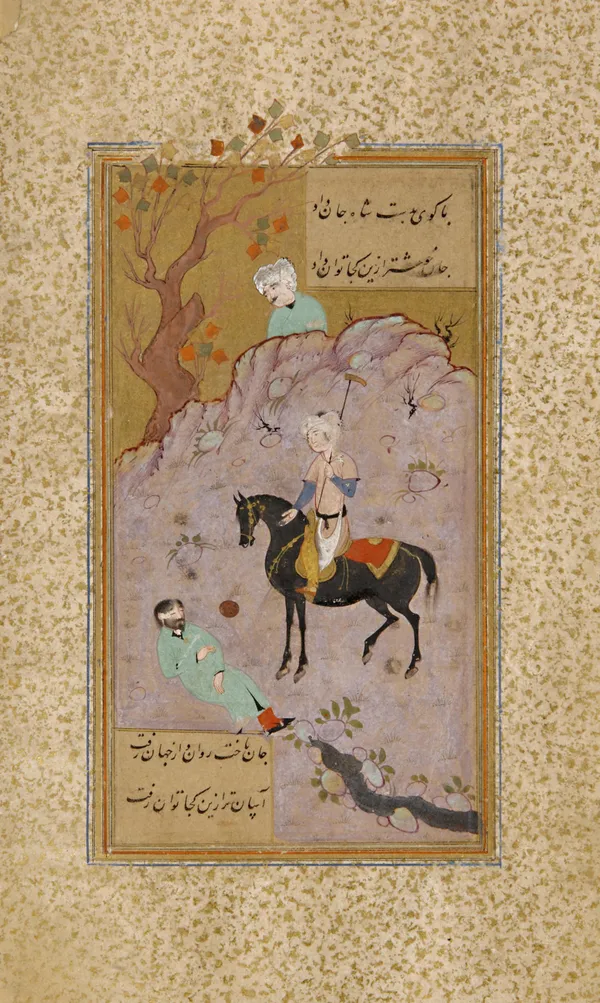 با کوی بدست شاه جان داد
جان خوشتر ازین کجا توان داد
جان باخت روان و از جهان رفت
آسان تر ازین کجا توان رفت